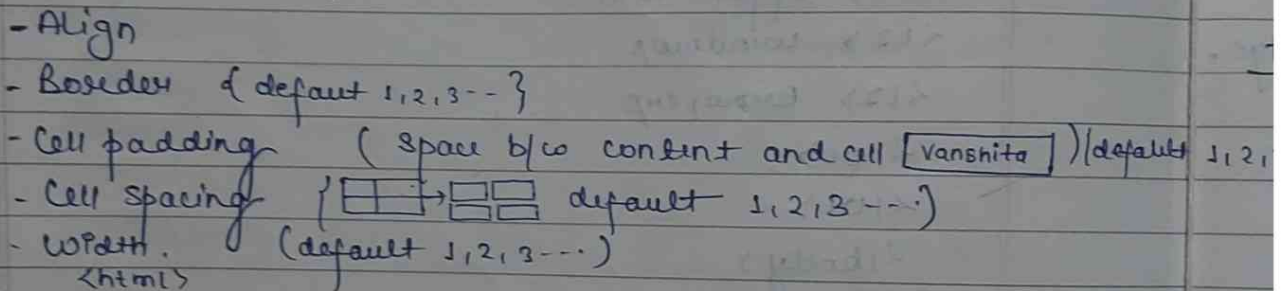 - Align
- Border { defaut 1,2,3--}
- Cell padding ( space b/w content and cell [Vanshita] ) (default 1,2,
- Cell spacing { default 1,2,3---)
- Width. (default 1,2,3---)
<html>